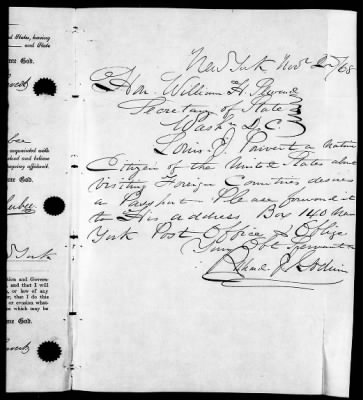 New York Nov 27/68
Hon. William H. Seward
Secretary of State
Wash. D.C.
Louis J. a Native
Citizen of the United States about
visiting Foreign Countries desires
a Passport Please forward it
to His address, Box 140 New
York Post Office & Oblige
Your Obt Servant
d States, having
and State
me God.
bee
cquainted with
ded and believe
oregoing affidavit.
me God.
York
tion and Govern-
and that I will
or law of any
r, that I do this
or evasion what-
which may be
me God.